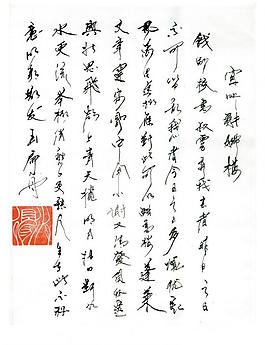 宣州謝朓樓
餞別校書叔雲棄我去者昨日之日
不可留亂我心者今日之日多煩憂長
風萬里送秋雁對此可以酣高樓蓬萊
文章建安骨中間小謝又清發俱懷逸
興壯思飛欲上青天攬明月抽刀斷水
水更流舉杯消愁愁更愁人生在世不稱
意明朝散髮弄扁舟